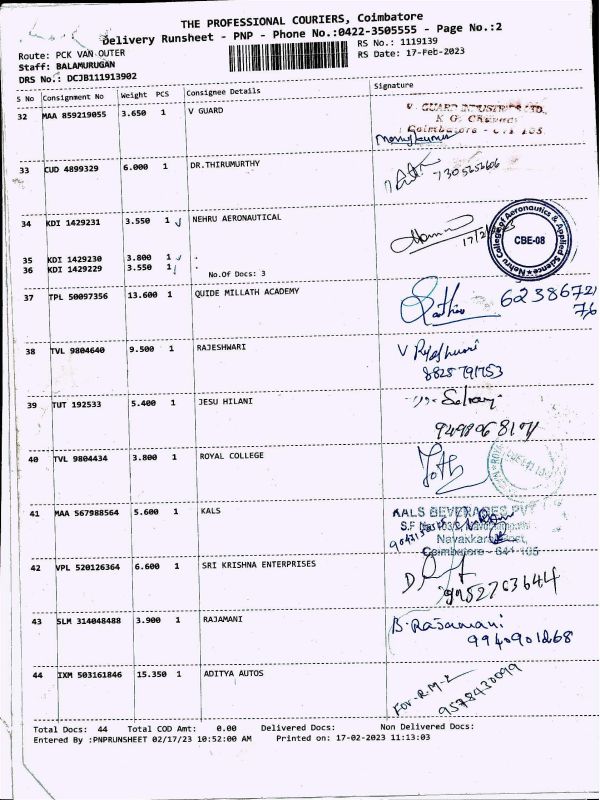 THE PROFESSIONAL COURIERS, Coimbatore
Delivery Runsheet - PNP - Phone No.:0422-3505555 - Page No.:2
Route: PCK VAN OUTER
Staff: BALAMURUGAN
DRS No.: DCJB111913902
RS No.: 1119139
RS Date: 17-Feb-2023
S No Consignment No Weight PCS Consignee Details Signature
32 MAA 859219055 3.650 1 V GUARD
V. GUARD INDUSTRIES LTD.
K G
Coimbatore - 641 105
33 CUD 4899329 6.000 1 DR.THIRUMURTHY
7305252606
34 KDI 1429231 3.550 1 NEHRU AERONAUTICAL
Nehru College of Aeronautics & Applied Science
CBE-08
35 KDI 1429230 3.800 1 .
36 KDI 1429229 3.550 1 .
No.Of Docs: 3
37 TPL 50097356 13.600 1 QUIDE MILLATH ACADEMY
62386721
76
38 TVL 9804640 9.500 1 RAJESHWARI
V Rajeshwari
8825791753
39 TUT 192533 5.400 1 JESU HILANI
Selvaraj
40 TVL 9804434 3.800 1 ROYAL COLLEGE
41 MAA 567988564 5.600 1 KALS
KALS BEVERAGES PVT
S.F No
Navakkarai Post,
Coimbatore - 641 105
42 VPL 520126364 6.600 1 SRI KRISHNA ENTERPRISES
9952763644
43 SLM 314048488 3.900 1 RAJAMANI
B. Rajamani
9940901268
44 IXM 503161846 15.350 1 ADITYA AUTOS
For-R.M-L
9578430099
Total Docs: 44 Total COD Amt: 0.00 Delivered Docs: Non Delivered Docs:
Entered By :PNPRUNSHEET 02/17/23 10:52:00 AM Printed on: 17-02-2023 11:13:03